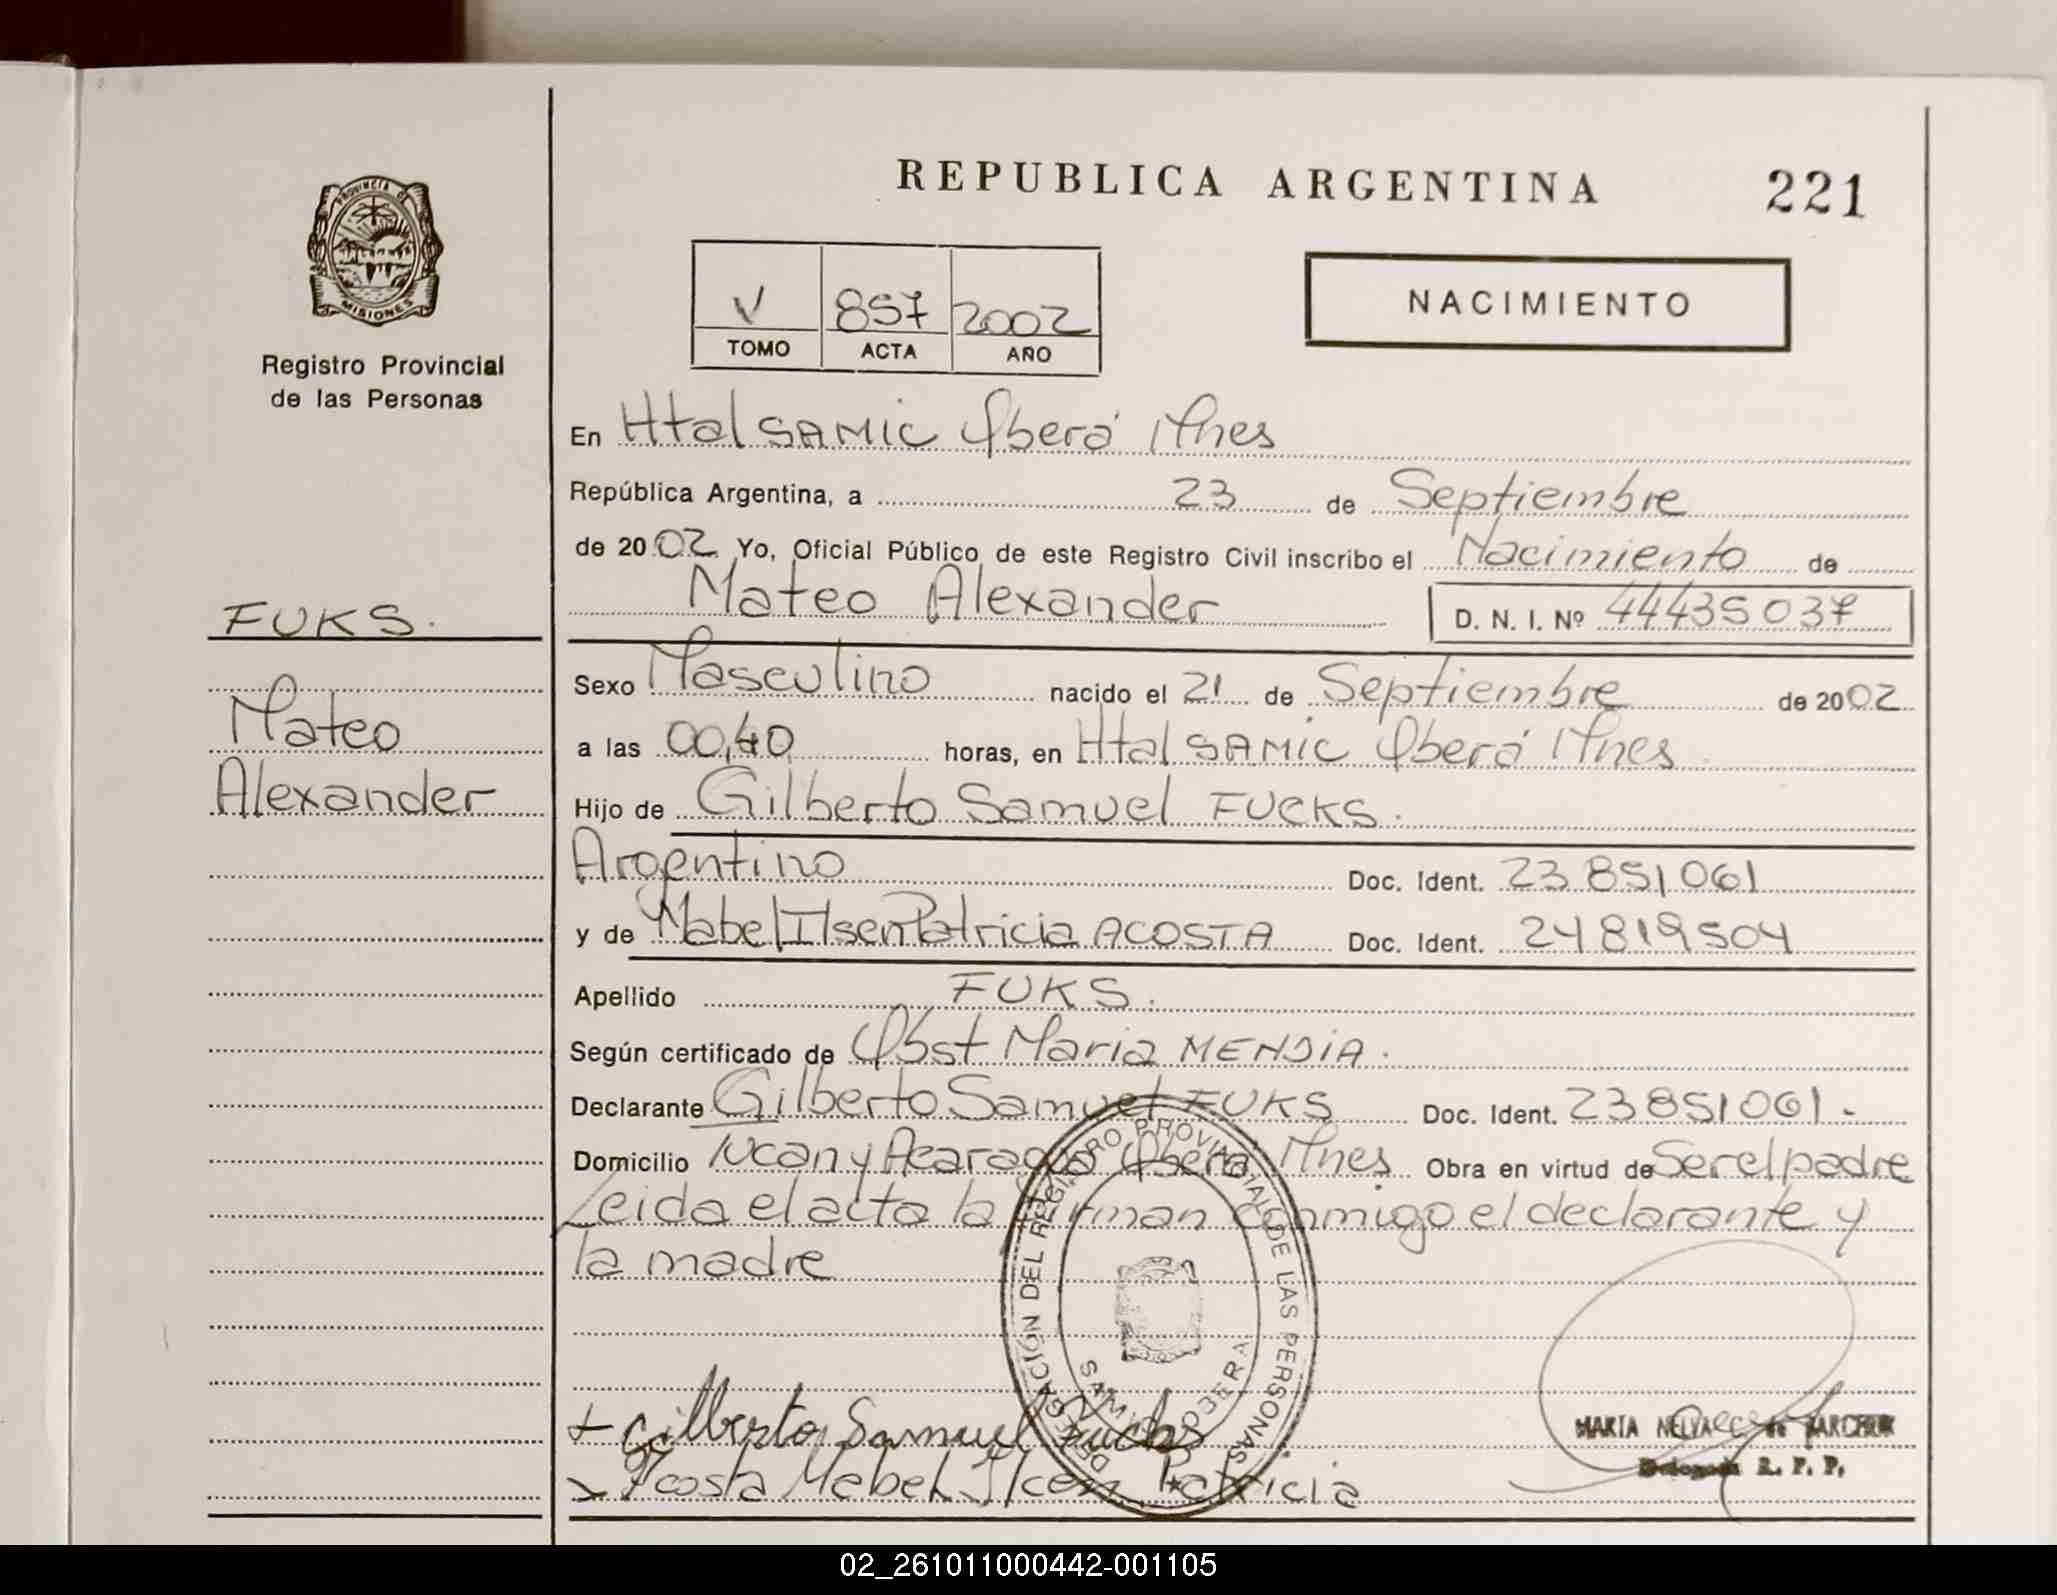 REPUBLICA ARGENTINA
221
PROVINCIA DE
MISIONES
Registro Provincial
de las Personas
V 857 2002
TOMO ACTA AÑO
NACIMIENTO
En Htal SAMIC Oberá Mnes
República Argentina, a 23 de Septiembre
de 2002 Yo, Oficial Público de este Registro Civil inscribo el Nacimiento de
Mateo Alexander D. N. I. Nº 44435037
FUKS.
Mateo
Alexander
Sexo Masculino nacido el 21 de Septiembre de 2002
a las 00,40 horas, en Htal SAMIC Oberá Mnes
Hijo de Gilberto Samuel FUCKS.
Argentino Doc. Ident. 23 851 061
y de Mabel Ilsen Patricia ACOSTA Doc. Ident. 24 819 504
Apellido FUKS.
Según certificado de Obst Maria MENDIA.
Declarante Gilberto Samuel FUKS Doc. Ident. 23851061.-
Domicilio y Acaragua Oberá Mnes Obra en virtud de Ser el padre
Leida el acta la firman conmigo el declarante y
la madre
DELEGACIÓN DEL REGISTRO PROVINCIAL DE LAS PERSONAS
SAMIC OBERA
+ Gilberto Samuel Fuchs
Acosta Mabel Ilcen Patricia
Delegada R. P. P.
02_261011000442-001105